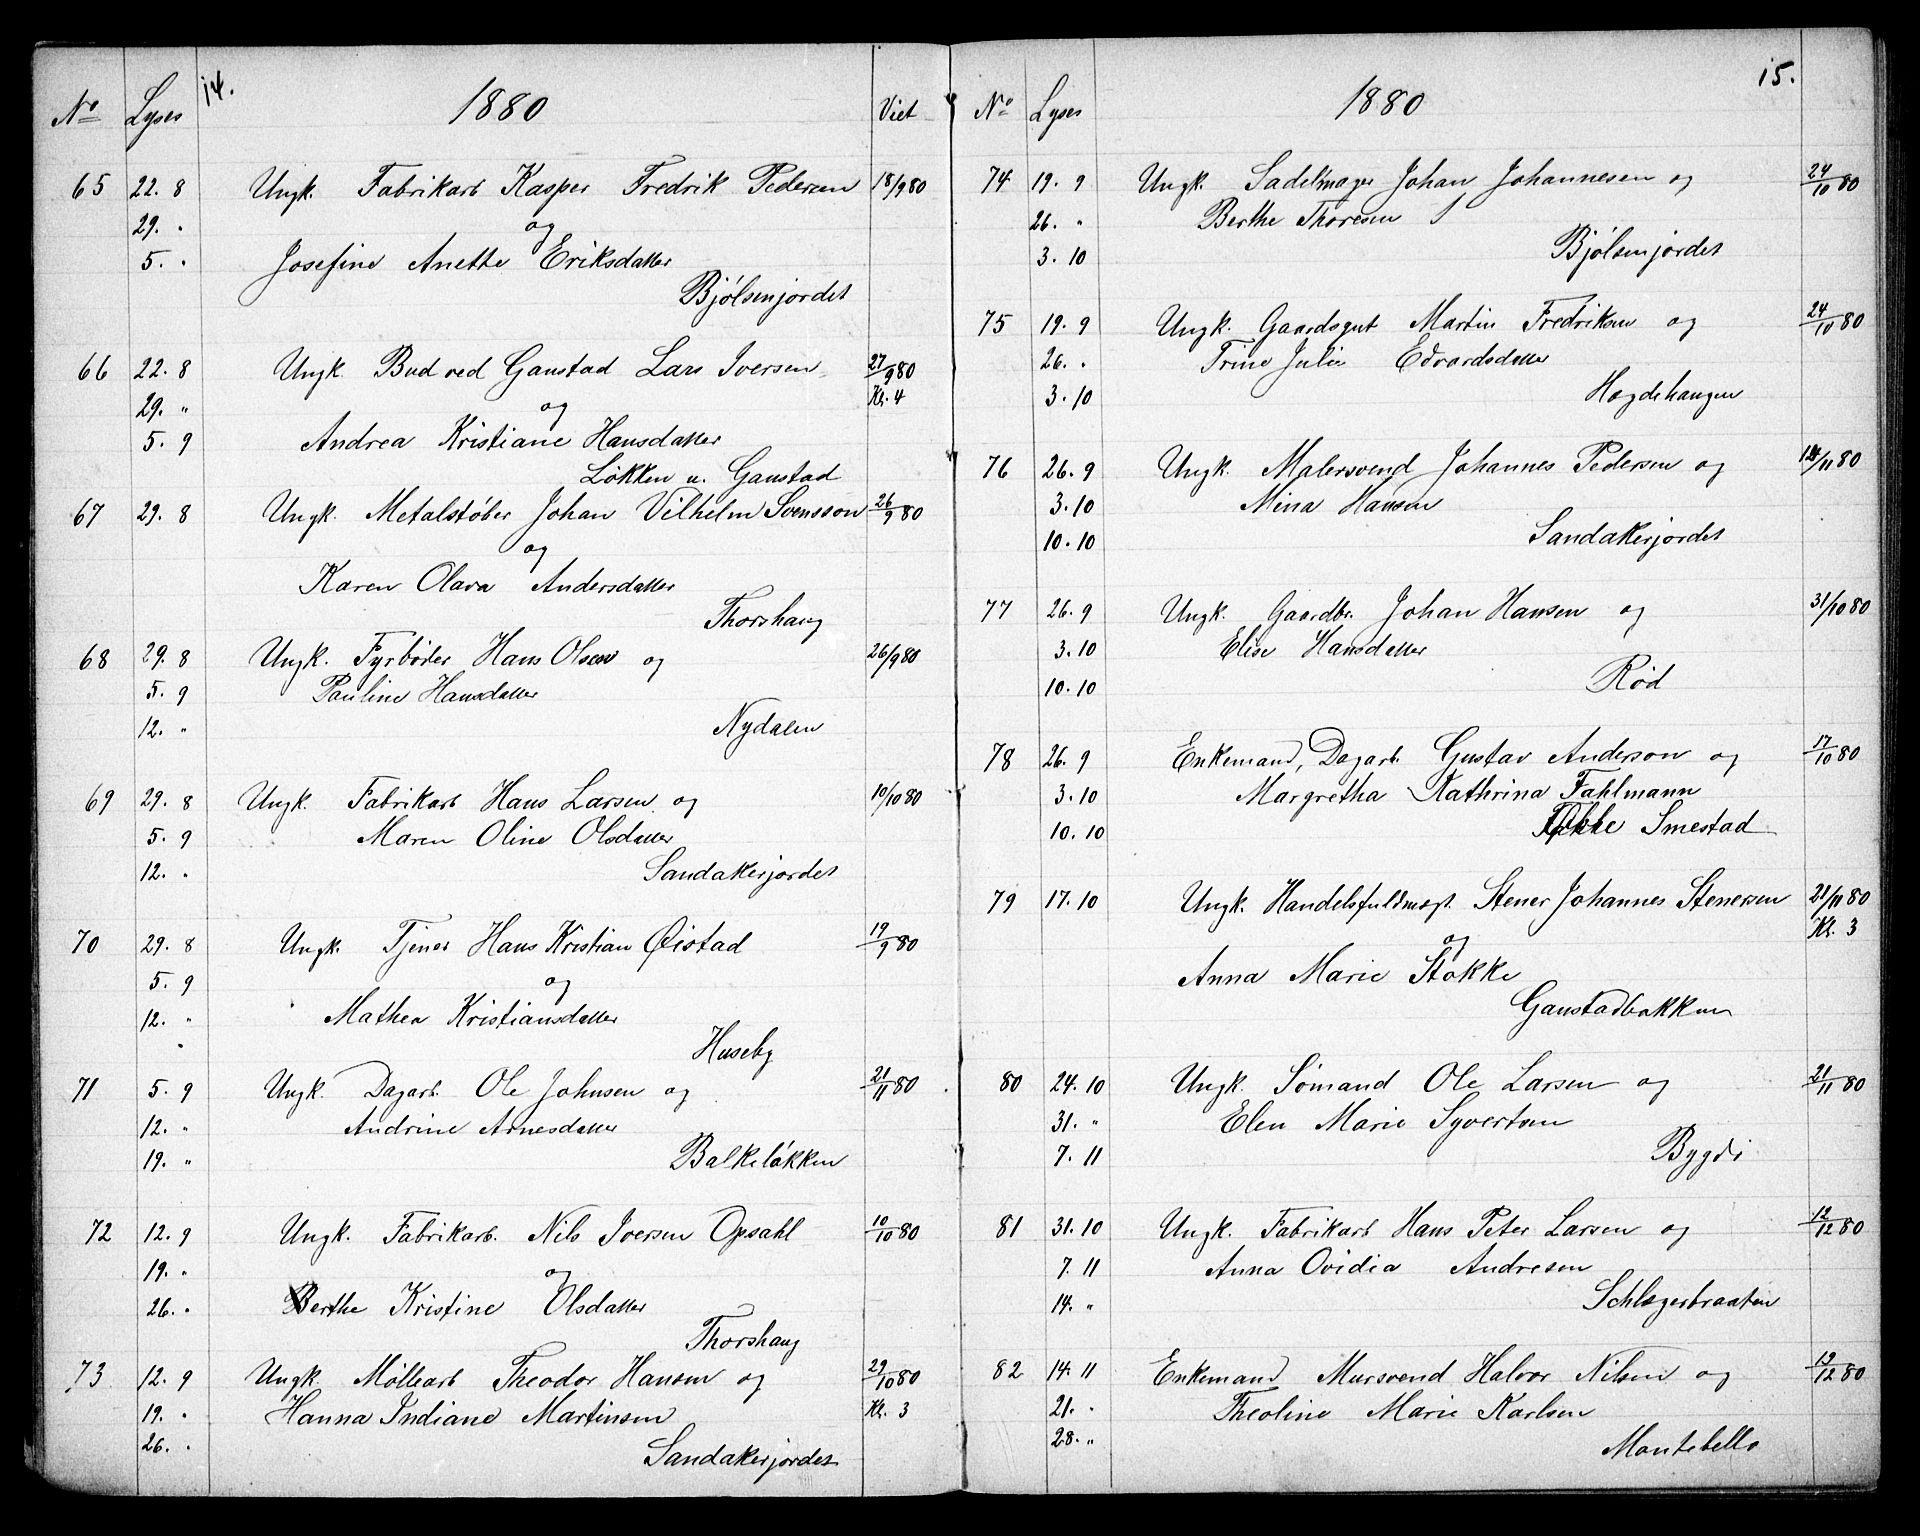 14.
No Lyses 1880 Viet
65 22. 8 Ungk. Fabrikarb Kasper Fredrik Pedersen 18/9 80
29. " og
5. " Josefine Anette Eriksdatter
Bjølsenjordet
66 22. 8 Ungk. Bud ved Gaustad Lars Iversen 27/9 80
29. " og Kl. 4
5. 9 Andrea Kristiane Hansdatter
Løkken u. Gaustad
67 29. 8 Ungk. Metalstøber Johan Vilhelm Svensson 26/9 80
og
Karen Olava Andersdatter
Thorshaug
68 29. 8 Ungk. Fyrbøder Hans Olsen og 26/9 80
5. 9 Pauline Hansdatter
12. " Nydalen
69 29. 8 Ungk. Fabrikarb Hans Larsen og 10/10 80
5. 9 Maren Oline Olsdatter
12. " Sandakerjordet
70 29. 8 Ungk. Tjener Hans Kristian Øistad 19/9 80
5. 9 og
12. " Mathea Kristiansdatter
" Huseby
71 5. 9 Ungk. Dagarb. Ole Johnsen og 21/11 80
12. " Andrine Arnesdatter
19. " Balkeløkken
72 12. 9 Ungk. Fabrikarb. Nils Iversen Opsahl 10/10 80
19. " og
26. " Berthe Kristine Olsdatter
Thorshaug
73 12. 9 Ungk. Møllearb Theodor Hansen og 29/10 80
19. " Hanna Indiane Martinsen Kl. 3
26. " Sandakerjordet
15.
No Lyses 1880
74 19. 9 Ungk. Sadelmager Johan Johannesen og 24/10 80
26. " Berthe Thoresen
3. 10 Bjølsenjordet
75 19. 9 Ungk. Gaardsgut Martin Fredriksen og 24/10 80
26. " Trine Julie Edvardsdatter
3. 10 Hægdehaugen
76 26. 9 Ungk. Malersvend Johannes Pedersen og /11 80
3. 10 Mina Hansen
10. 10 Sandakerjordet
77 26. 9 Ungk. Gaardbr. Johan Hansen og 31/10 80
3. 10 Elise Hansdatter
10. 10 Rød
78 26. 9 Enkemand, Dagarb. Gustav Anderson og 17/10 80
3. 10 Margretha Kathrina Fahlmann
10. 10 Smestad
79 17. 10 Ungk. Handelsfuldmægt. Stener Johannes Stenersen 21/11 80
og Kl. 3
Anna Marie Stokke
Gaustadbakken
80 24. 10 Ungk. Sømand Ole Larsen og 21/11 80
31. " Elen Marie Syvertsen
7. 11 Bygdø
81 31. 10 Ungk. Fabrikarb Hans Peter Larsen og 12/12 80
7. 11 Anna Ovidia Andresen
14. " Schlægerbraaten
82 14. 11 Enkemand Mursvend Halvor Nilsen og 19/12 80
21. " Theoline Marie Karlsen
28. " Montebello